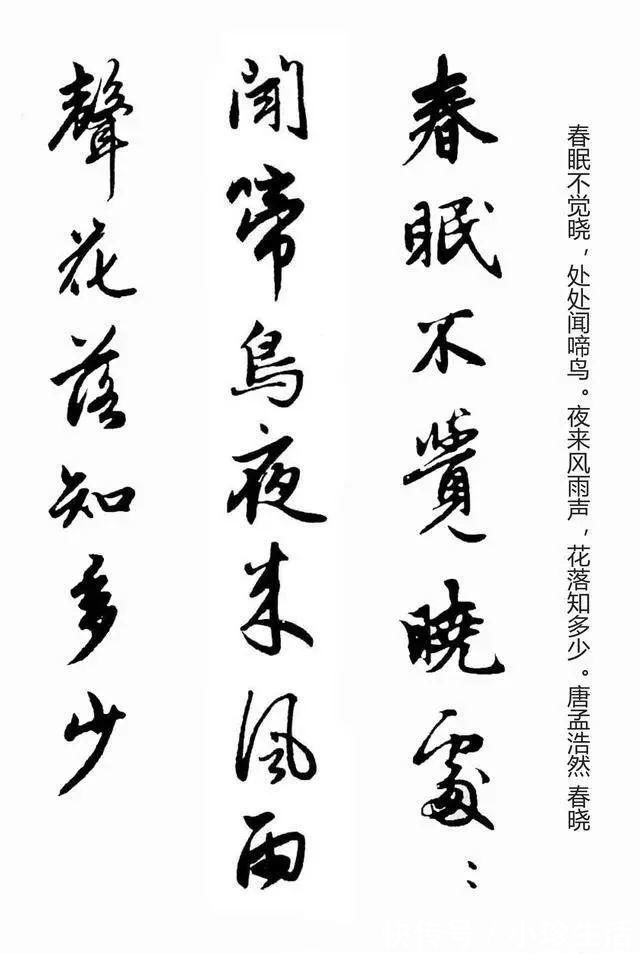 春眠不觉晓，处处闻啼鸟。夜来风雨声，花落知多少。唐孟浩然 春晓
春眠不覺曉處：
聞啼鳥夜来風雨
聲花落知多少
快传号/小珍生活